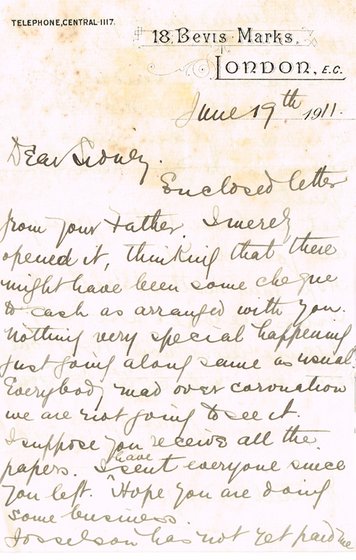 TELEPHONE, CENTRAL 1117.
18, Bevis Marks,
London, E.C.
June 19th 1911.
Dear Sidney.
Enclosed letter
from your Father. I merely
opened it, thinking that there
might have been some cheque
to cash as arranged with you.
Nothing very special happening
just going along same as usual.
Everybody mad over coronation
we are not going to see it.
I suppose you receive all the
papers. I have sent everyone since
you left. Hope you are doing
some business.
Josselson has not yet paid me